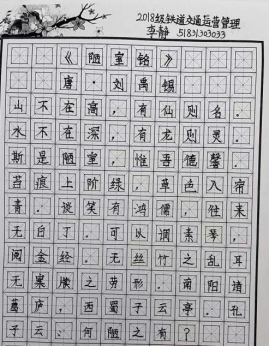 2018级铁道交通运营管理
李静 51831303033
《陋室铭》
唐·刘禹锡
山不在高，有仙则名。
水不在深，有龙则灵。
斯是陋室，惟吾德馨。
苔痕上阶绿，草色入帘
青。谈笑有鸿儒，往来
无白丁。可以调素琴，
阅金经。无丝竹之乱耳
无案牍之劳形。南阳诸
葛庐，西蜀子云亭。孔
子云：何陋之有？